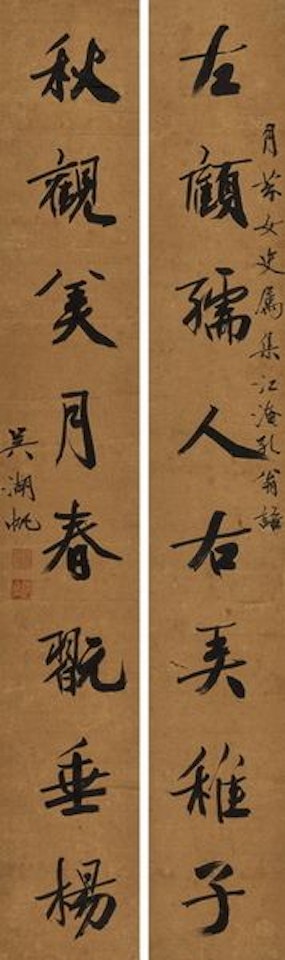 月女史属集江淹孔翁語
左顧孺人右弄稚子
秋觀美月春翫垂楊
吳湖帆